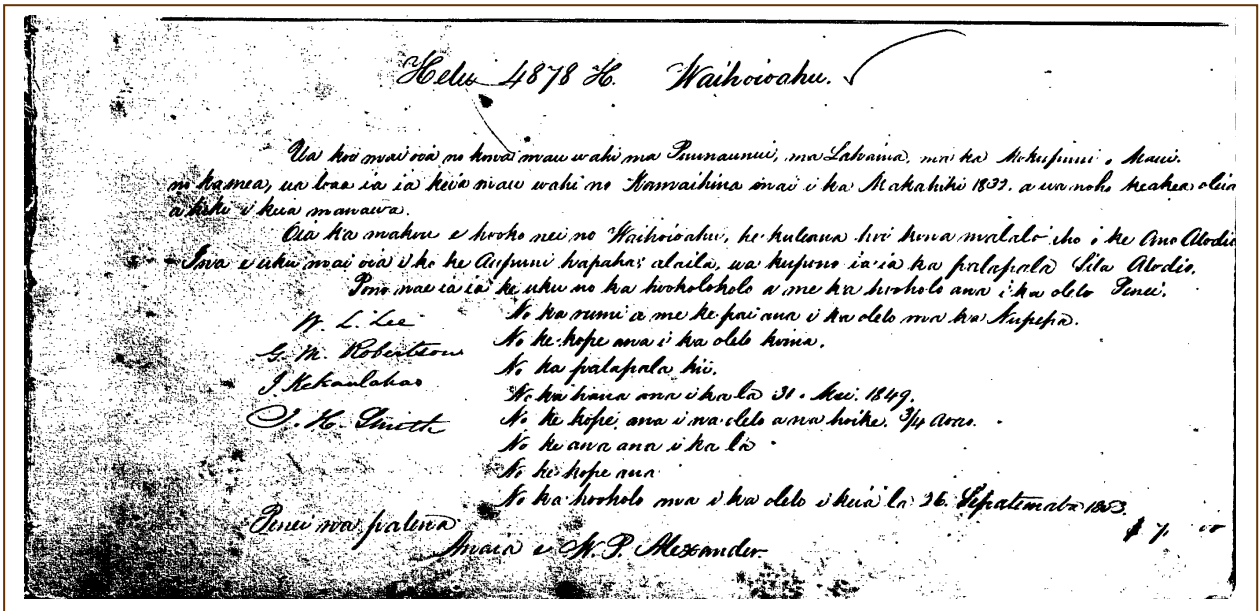 Helu 4878 H. Waihoioahu.
Ua koi mai oia no kona mau wahi ma Puunaunui, ma Lahaina, ma ka Mokupuni o Maui.
no kamea, ua loaa ia ia keia mau wahi no Kamaihina mai i ka Makahiki 1832. a ua noho keakea oleia
a hiki i keia manawa.
Oia ka makou e hooko nei no Waihoioahu, he kuleana hoi kona malalo iho o ke Ano Alodio
Ina e uku mai oia i ko ke Aupuni hapaha; alaila, ua kupono ia ia ka palapala Sila Alodio.
Pono nae ia ia ke uku no ka hookolokolo a me ka hooholo ana i ka olelo Penei.
No ka rumi a me ke pai ana i ka olelo ma ka Nupepa.
W. L. Lee
No ke kope ana i ka olelo koina.
G. M. Robertson
No ka palapala kii.
J. Kekaulahao
No ka hana ana i ka la 31. Mei. 1849.
J. H. Smith
No ke kope ana i na olelo a na hoike. 3/4 aoao.
No ke ana ana i ka la
No ke kope ana
No ka hooholo ana i ka olelo i keia la 26. Sepatemaba 1853.
$ 7. 00
Penei na palena
Anaia e W. P. Alexander